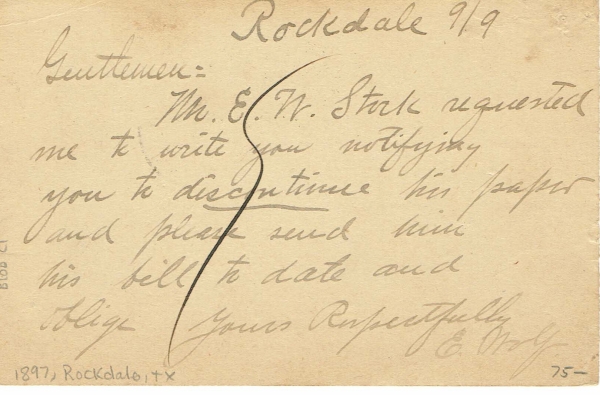 Rockdale 9/9
Gentlemen =
Mr. E. W. Stork requested
me to write you notifying
you to discontinue his paper
and please send him
his bill to date and
oblige Yours Respectfully
E. Wolf
1897, Rockdale, tx
75—